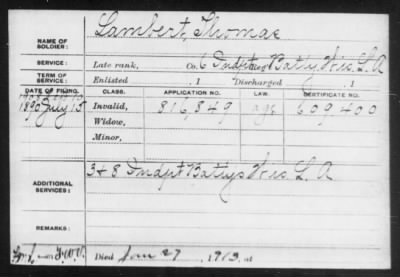 NAME OF SOLDIER: Lambert, Thomas
SERVICE: Late rank, Co. 6 Indpt Reg't Batty Wis. L. A
TERM OF SERVICE: Enlisted , 1 Discharged , 1
DATE OF FILING. CLASS. APPLICATION NO. LAW. CERTIFICATE NO.
1890 July 13 Invalid, 816,849 609,400
Widow,
Minor,
ADDITIONAL SERVICES: 3 & 8 Indpt Battys Wis. L. A
REMARKS:
Died Jan 27, 1913, at